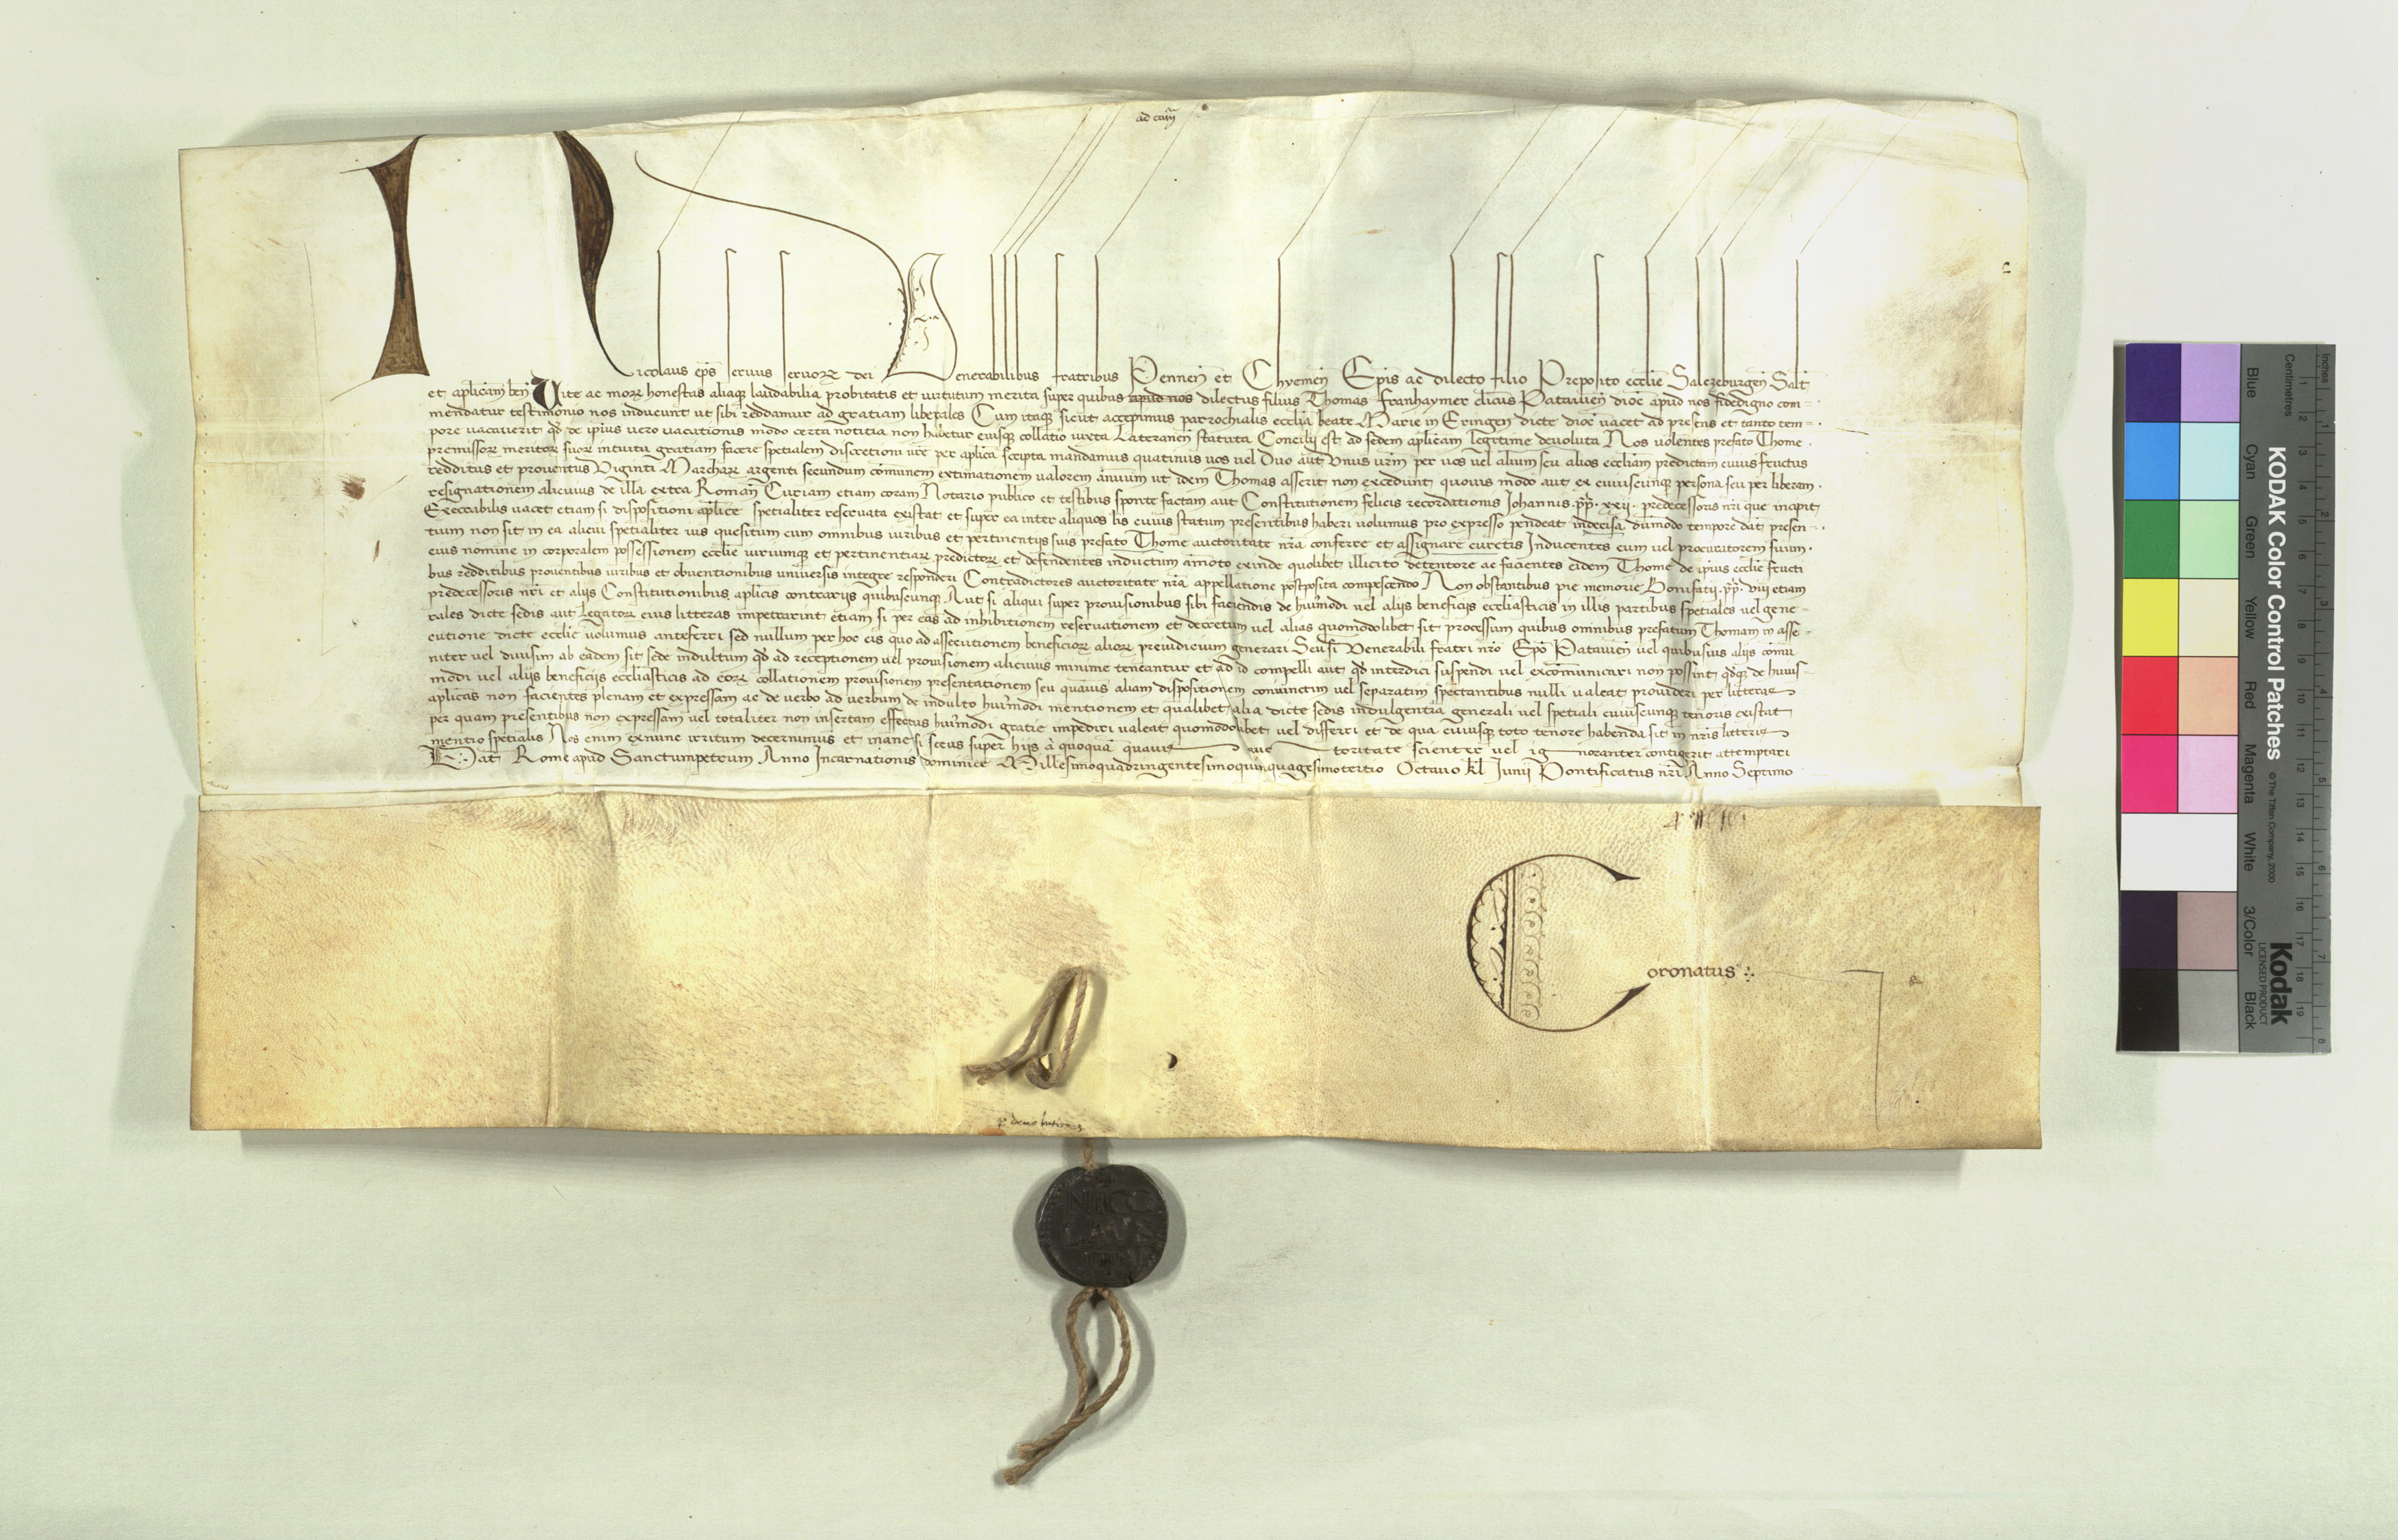 ad cam̄
Nicolaus ep̄s seruus seruoꝝ dei Venerabilibus fratribus Pennen̄ et Chyemen̄ Ep̄is ac dilecto filio Preposito eccl̄ie Salczeburgen̄ Salt̄
et ap̄licam ben̄ Vite ac moꝝ honestas aliaqꝫ laudabilia probitatis et uirtutum merita super quibus apud nos dilectus filius Thomas Franhaymer cl̄icus Patauien̄ dioc̄ apud nos fidedigno com-
mendatur testimonio nos inducunt ut sibi reddamur ad gratiam liberales Cum itaqꝫ sicut accepimus parrochialis eccl̄ia beate Marie in Eringen dicte dioc̄ uacet ad presens et tanto tem-
pore uacauerit qd̄ de ip̄ius uero uacationis modo certa notitia non habetur eiusqꝫ collatio iuxta Lateranen̄ statuta Concilij est ad sedem ap̄licam legitime deuoluta Nos uolentes prefato Thome
premissoꝝ meritoꝝ suoꝝ intuitu gratiam facere spetialem discretioni ur̄e per ap̄lica scripta mandamus quatinus uos uel Duo aut Vnus ur̄m per uos uel alium seu alios eccl̄iam predictam cuius fructus
redditus et prouentus Viginti Marchaꝝ argenti secundum com̄unem extimationem ualorem annuum ut idem Thomas asserit non excedunt quouis modo aut ex cuiuscunqꝫ persona seu per liberam
resignationem alicuius de illa extra Roman̄ Curiam etiam coram Notario publico et testibus sponte factam aut Constitutionem felicis recordationis Johannis pp̄ xxij predecessoris nr̄i que incipit
Execrabilis uacet etiam si dispositioni ap̄lice spetialiter reseruata existat et super ea inter aliquos lis cuius statum presentibus haberi uolumus pro expresso pendeat indecisa dummodo tempore dat̄ presen-
tium non sit in ea alicui spetialiter ius quesitum cum omnibus iuribus et pertinentijs suis prefato Thome auctoritate nr̄a conferre et assignare curetis Inducentes eum uel procuratorem suum
eius nomine in corporalem possessionem eccl̄ie iuriumqꝫ et pertinentiaꝝ predictoꝝ et defendentes inductum amoto exinde quolibet illicito detentore ac facientes eidem Thome de ip̄ius eccl̄ie fructi
bus redditibus prouentibus iuribus et obuentionibus uniuersis integre responderi Contradictores auctoritate nr̄a appellatione postposita compescendo Non obstantibus pie memorie Bonifatij pp̄ viij etiam
predecessoris nr̄i et alijs Constitutionibus ap̄licis contrarijs quibuscunqꝫ Aut si aliqui super prouisionibus sibi faciendis de huīmodi uel alijs beneficijs eccl̄iasticis in illis partibus spetiales uel gene-
rales dicte sedis aut Legatoꝝ eius litteras impetrarint etiam si per eas ad inhibitionem reseruationem et decretum uel alias quomodolibet sit processum quibus omnibus prefatum Thomam in asse-
cutione dicte eccl̄ie uolumus anteferri sed nullum per hoc eis quo ad assecutionem beneficioꝝ alioꝝ preiudicium generari Seu si Venerabili fratri nr̄o Ep̄o Patauien̄ uel quibusuis alijs com̄u
niter uel diuisim ab eadem sit sede indultum qd̄ ad receptionem uel prouisionem alicuius minime teneantur et ad id compelli aut qd̄ interdici suspendi uel excom̄unicari non possint qd̄qꝫ de huius-
modi uel alijs beneficijs eccl̄iasticis ad eoꝝ collationem prouisionem presentationem seu quamuis aliam dispositionem coniunctim uel separatim spectantibus nulli ualeat prouideri per litteras
ap̄licas non facientes plenam et expressam ac de uerbo ad uerbum de indulto huīmodi mentionem et qualibet alia dicte sedis indulgentia generali uel spetiali cuiuscunqꝫ tenoris existat
per quam presentibus non expressam uel totaliter non insertam effectus huīmodi gratie impediri ualeat quomodolibet uel differri et de qua cuiusqꝫ toto tenore habenda sit in nr̄is litteris
mentio spetialis Nos enim exnunc irritum decernimus et inane si secus super hijs a quoquam quauis auctoritate scienter uel ignoranter contigerit attemptari
Dat̄ Rome apud Sanctumpetrum Anno Incarnationis dominice Millesimoquadringentesimoquinquagesimotertio Octauo kl̄ Junij Pontificatus nr̄i Anno Septimo
Coronatus
p̄ deuolutionem
NICO
LAVS
PP V